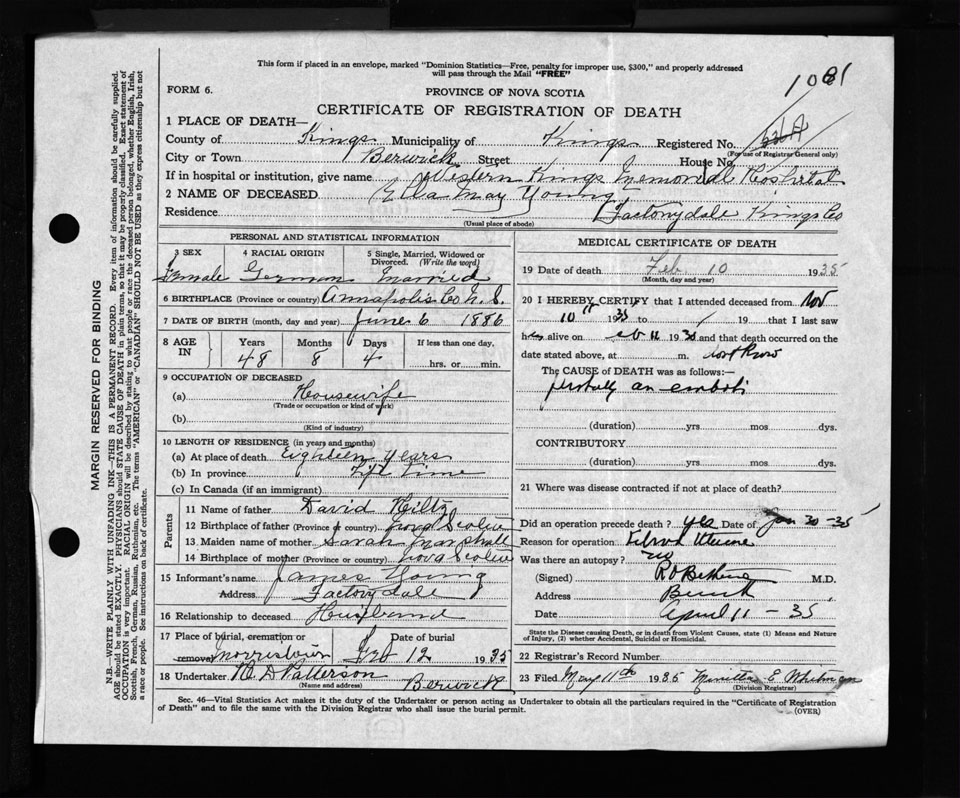 This form if placed in an envelope, marked "Dominion Statistics—Free, penalty for improper use, $300," and properly addressed
will pass through the Mail "FREE"
1081
FORM 6.
PROVINCE OF NOVA SCOTIA
CERTIFICATE OF REGISTRATION OF DEATH
1 PLACE OF DEATH—
County of Kings Municipality of Kings Registered No.
(For use of Registrar General only)
City or Town Berwick Street House No
If in hospital or institution, give name Western Kings Memorial Hospital
2 NAME OF DECEASED Ella May Young
Residence Factorydale Kings Co
(Usual place of abode)
PERSONAL AND STATISTICAL INFORMATION
3 SEX 4 RACIAL ORIGIN 5 Single, Married, Widowed or Divorced. (Write the word)
Female German Married
6 BIRTHPLACE (Province or country) Annapolis Co N. S.
7 DATE OF BIRTH (month, day and year) June 6 1886
8 AGE IN Years Months Days If less than one day.
48 8 4 hrs. or min.
9 OCCUPATION OF DECEASED
(a) Housewife
(Trade or occupation or kind of work)
(b)
(Kind of industry)
10 LENGTH OF RESIDENCE (in years and months)
(a) At place of death Eighteen years
(b) In province Life time
(c) In Canada (if an immigrant)
Parents
11 Name of father David Hiltz
12 Birthplace of father (Province or country) Nova Scotia
13 Maiden name of mother Sarah Marshall
14 Birthplace of mother (Province or country) Nova Scotia
15 Informant's name James Young
Address Factorydale
16 Relationship to deceased Husband
17 Place of burial, cremation or removal Morristown Date of burial Feb 12 1935
18 Undertaker N. D Patterson Berwick
(Name and address)
MEDICAL CERTIFICATE OF DEATH
19 Date of death Feb 10 1935
(Month, day and year)
20 I HEREBY CERTIFY that I attended deceased from Nov
10 1935 to 19 that I last saw
her alive on 19 and that death occurred on the
date stated above, at m.
The CAUSE of DEATH was as follows:—
probably an emboli
(duration) yrs mos dys.
CONTRIBUTORY
(duration) yrs mos dys.
21 Where was disease contracted if not at place of death?
Did an operation precede death? yes Date of Jan 30-35
Reason for operation Fibroid Uterine
Was there an autopsy? no
(Signed) M.D.
Address Berwick
Date April 11 - 35
State the Disease causing Death, or in death from Violent Causes, state (1) Means and Nature
of Injury, (2) whether Accidental, Suicidal or Homicidal.
22 Registrar's Record Number
23 Filed May 11th 1935 E. Whitman
(Division Registrar)
Sec. 46—Vital Statistics Act makes it the duty of the Undertaker or person acting as Undertaker to obtain all the particulars required in the "Certificate of Registration
of Death" and to file the same with the Division Registrar who shall issue the burial permit.
(OVER)
MARGIN RESERVED FOR BINDING
N.B.—WRITE PLAINLY WITH UNFADING INK—THIS IS A PERMANENT RECORD. Every item of information should be carefully supplied.
AGE should be stated EXACTLY. PHYSICIANS should STATE CAUSE OF DEATH in plain terms, so that it may be properly classified. Exact statement of
OCCUPATION is very important. RACIAL ORIGIN will be described by stating to what people or race the deceased person belonged, whether English, Irish,
Scottish, French, German, Russian, Ruthenian, etc. The terms "AMERICAN" or "CANADIAN" SHOULD NOT BE USED as they express citizenship but not
a race or people. See instructions on back of certificate.